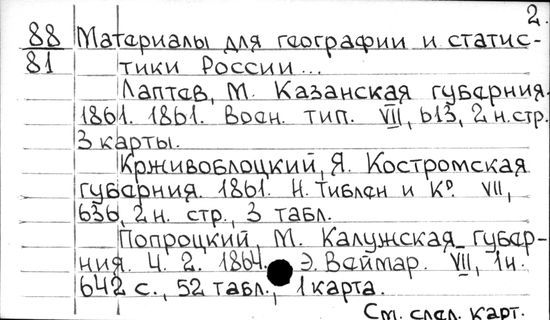 2.
88 Материалы для географии и статис-
81 тики России...
Лаптев, М. Казанская губерния.
1861. 1861. Воен. тип. VII, 613, 2 н.стр.
3 карты.
Крживоблоцкий, Я. Костромская
губерния. 1861. Н. Тиблен и Ко. VII,
636, 2 н. стр., 3 табл.
Попроцкий, М. Калужская губер-
ния. Ч. 2. 1864. Э. Веймар. VII, 1н.
642 с., 52 табл., 1 карта.
См. след. карт.